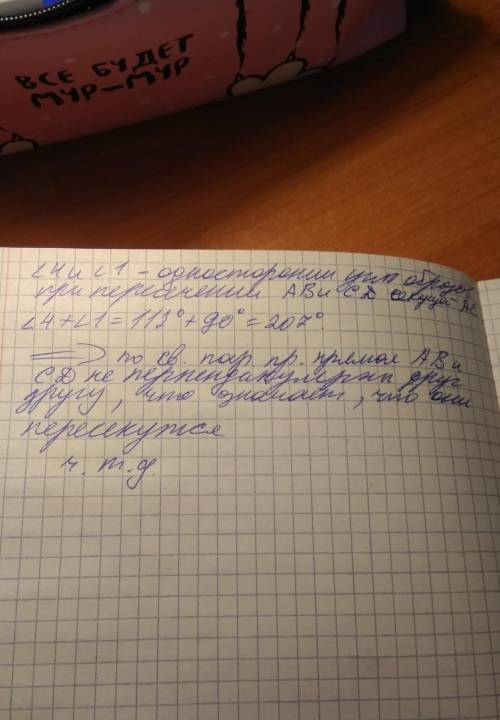 ВСЕ БУДЕТ
МУР-МУР
∠4 и ∠1 - односторонии угл образ.
при пересечении AB и CD секущей AC
∠4+∠1=112°+90°=207°.
=> по св. пар. пр. прямая AB и
CD не перпендикулярны друг
другу, что означает, что они
пересекутся
ч. т. д.